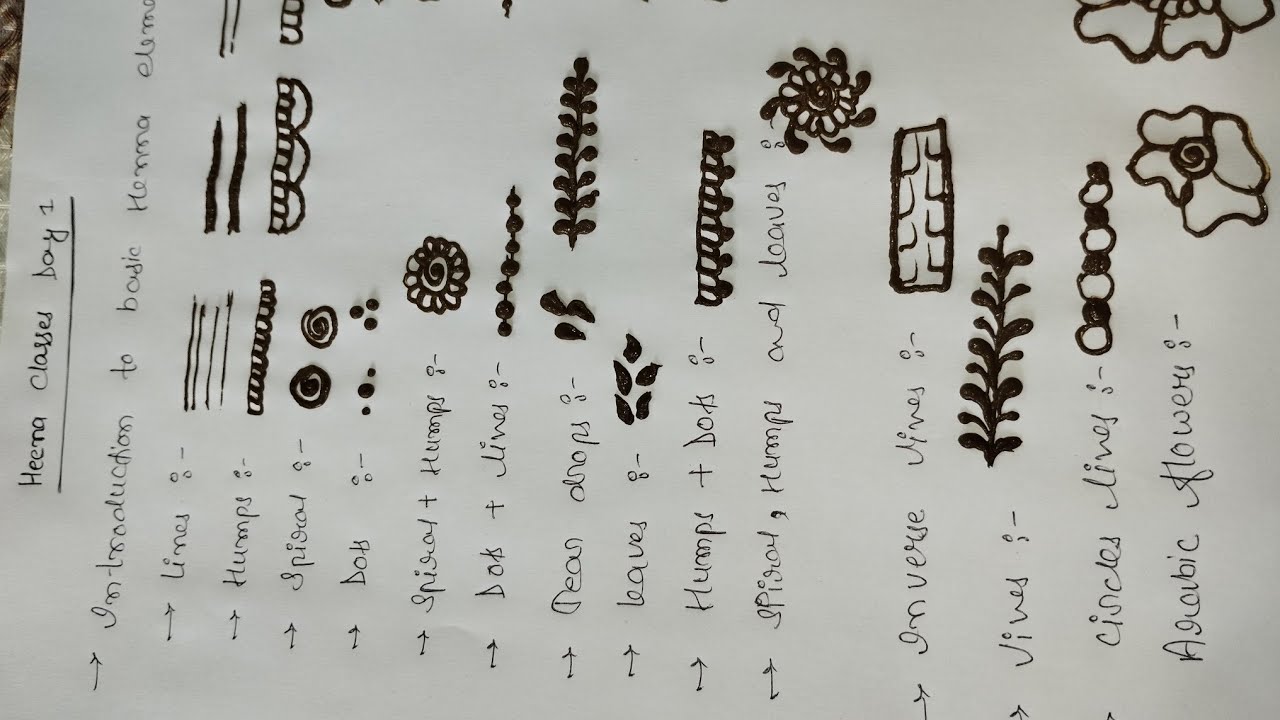 Heena Classes Day 1
→ Introduction to basic Henna eleme
→ Lines :-
→ Humps :-
→ Spiral :-
→ Dots :-
→ Spiral + Humps :-
→ Dots + lines :-
→ Tear drops :-
→ leaves :-
→ Humps + Dots :-
→ Spiral, Humps and leaves :-
→ Inverse vines :-
→ Vines :-
→ Circles lines :-
Arabic flowers :-